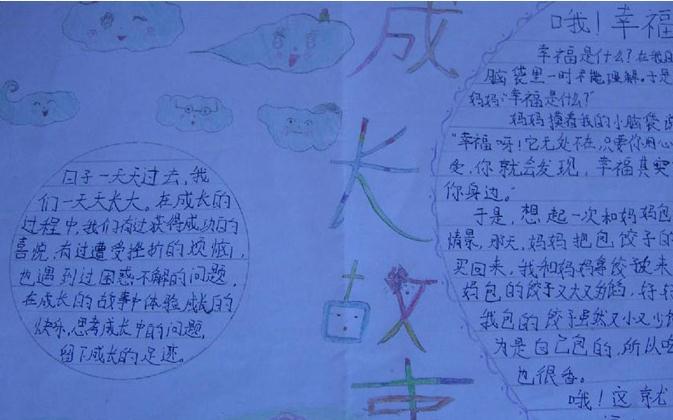 成
长
故
事
日子一天天过去,我
们一天天长大。在成长的
过程中,我们有过获得成功的
喜悦,有过遭受挫折的烦恼,
也遇到过困惑不解的问题,
在成长的故事中体验成长的
快乐,思考成长中的问题,
留下成长的足迹。
哦!幸福
幸福是什么?在我
脑袋里一时不能理解。于是
妈妈"幸福是什么?"
妈妈摸着我的小脑袋说
"幸福呀!它无处不在,只要你用心
受,你就会发现,幸福其实
你身边。"
于是,想起一次和妈妈包
情景,那天,妈妈把包饺子的
买回来,我和妈妈将饺皮来
妈包的饺子又大又好
我包的饺子虽然又小又
为是自己包的,所以
也很香。
哦!这就